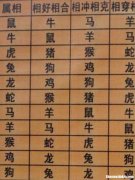 属相 相好相合 相冲相克 相穿相
鼠 牛 马
牛 鼠 羊
虎 猪 猴
兔 狗 鸡
龙 鸡 狗
蛇 猴 猪
马 羊 鼠
羊 马 牛
猴 蛇 虎
鸡 龙 兔
狗 兔 龙